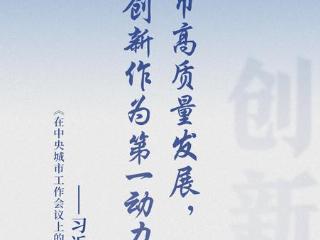 市高质量发展，
创新作为第一动力
《在中央城市工作会议上的
——习近
创新